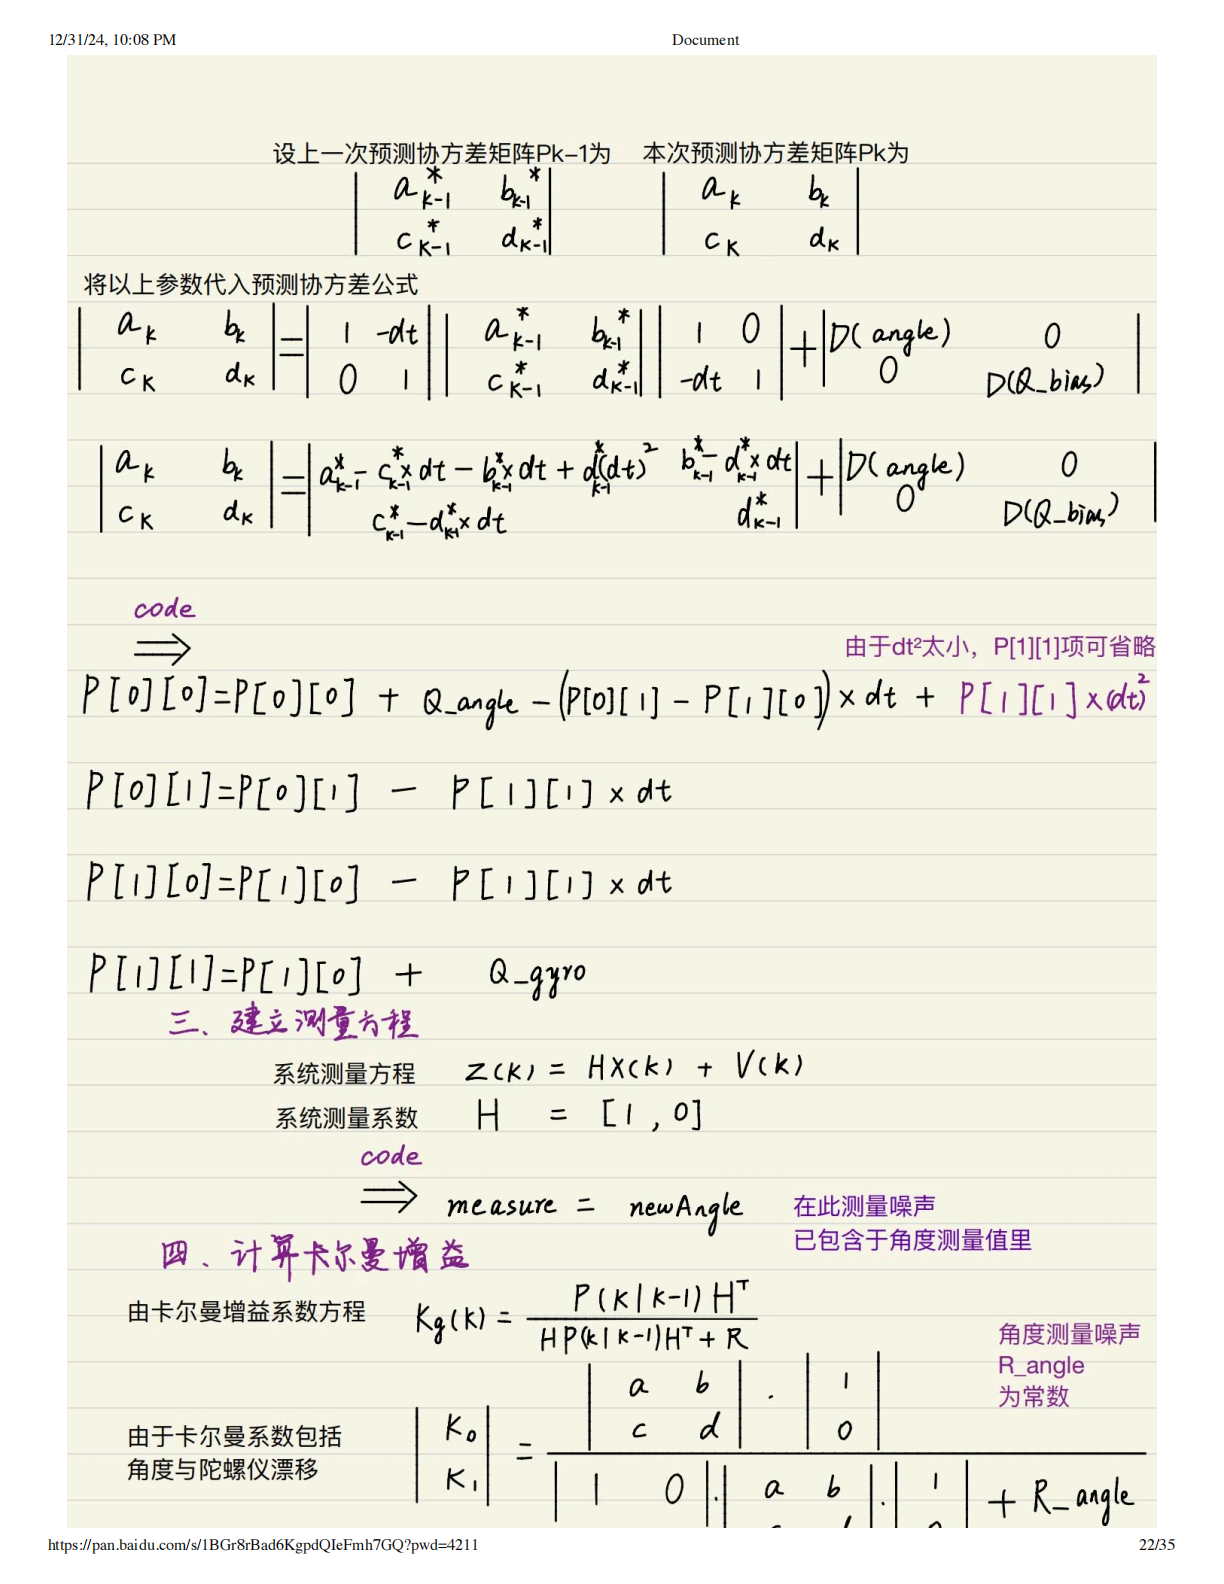 12/31/24, 10:08 PM Document
设上一次预测协方差矩阵Pk-1为 本次预测协方差矩阵Pk为
| a*k-1 b*k-1 | | ak bk |
| c*k-1 d*k-1 | | ck dk |
将以上参数代入预测协方差公式
| ak bk | = | 1 -dt | | a*k-1 b*k-1 | | 1 0 | + | D(angle) 0 |
| ck dk | | 0 1 | | c*k-1 d*k-1 | | -dt 1 | | 0 D(Q_bias) |
| ak bk | = | a*k-1 - c*k-1 × dt - b*k-1 × dt + d*k-1(dt)² b*k-1 - d*k-1 × dt | + | D(angle) 0 |
| ck dk | | c*k-1 - d*k-1 × dt d*k-1 | | 0 D(Q_bias) |
code
⇒
由于dt²太小，P[1][1]项可省略
P[0][0]=P[0][0] + Q_angle - (P[0][1] - P[1][0]) × dt + P[1][1] × (dt)²
P[0][1]=P[0][1] - P[1][1] × dt
P[1][0]=P[1][0] - P[1][1] × dt
P[1][1]=P[1][0] + Q_gyro
三、建立测量方程
系统测量方程 Z(k) = HX(k) + V(k)
系统测量系数 H = [1, 0]
code
⇒ measure = newAngle 在此测量噪声
已包含于角度测量值里
四、计算卡尔曼增益
由卡尔曼增益系数方程 Kg(k) = P(k|k-1)Hᵀ / HP(k|k-1)Hᵀ + R
角度测量噪声
R_angle
为常数
| a b | . | 1 |
| c d | | 0 |
由于卡尔曼系数包括
角度与陀螺仪漂移
| K0 | =
| K1 |
| 1 0 | . | a b | . | 1 | + R_angle
https://pan.baidu.com/s/1BGr8rBad6KgpdQIeFmh7GQ?pwd=4211 22/35